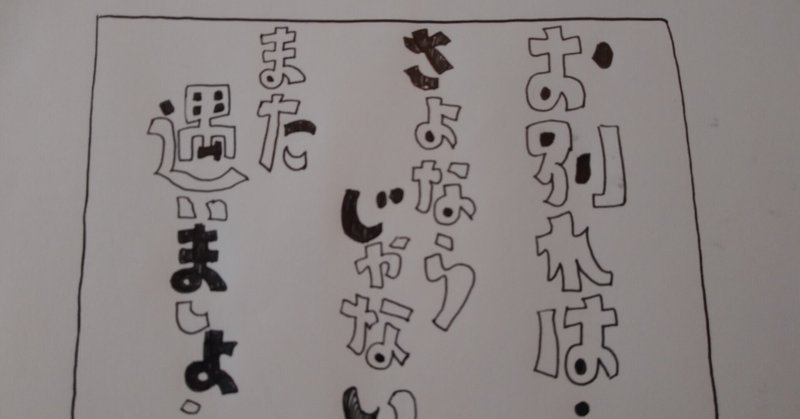 お別れは・
さよなら
じゃない
また
遇いましょ